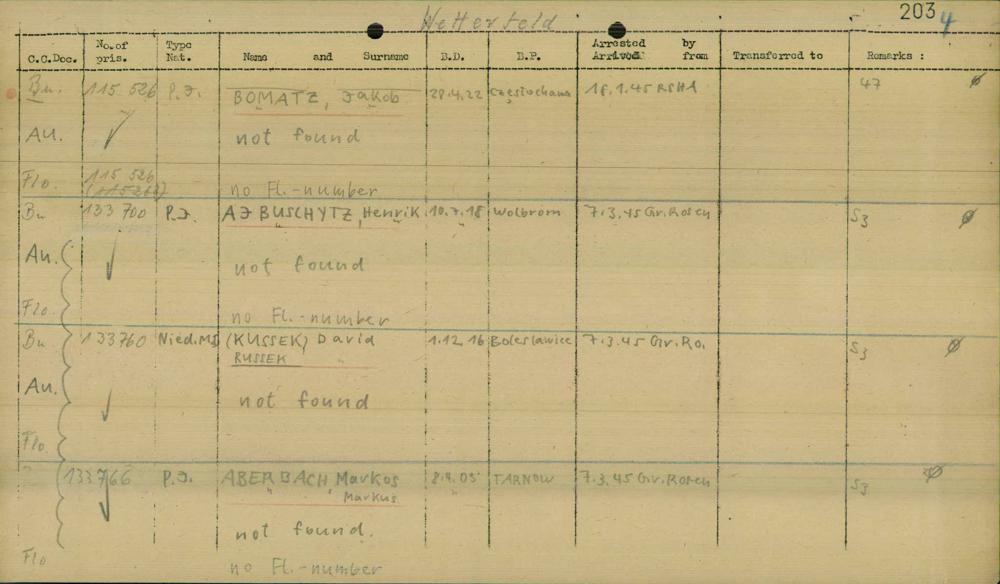 Wetterfeld 203 4
C.C.Doc. No. of pris. Type Nat. Name and Surname B.D. B.P. Arrested by Arrived from Transferred to Remarks :
Bu. 115.526 P.J. BOMATZ, Jakob 28.4.22 Częstochawa 18.1.45 RSHA 47 ø
Au. not found
Flo. 115 526
no Fl.-number
Bu 133 700 P.J. AJBUSCHYTZ, Henrik 10.7.18 Wolbrom 7.3.45 Gr.Rosen S3 ø
Au. not found
Flo. no Fl.-number
Bu 133760 Nied. (KUSSEK) David 1.12.16 Boleslawice 7.3.45 Gr.Ro. S3 ø
RUSSEK
Au. not found
Flo
133766 P.J. ABERBACH, Markos 8.9.05 TARNOW 7.3.45 Gr.Rosen S3 ø
Markus
not found.
Flo no Fl.-number